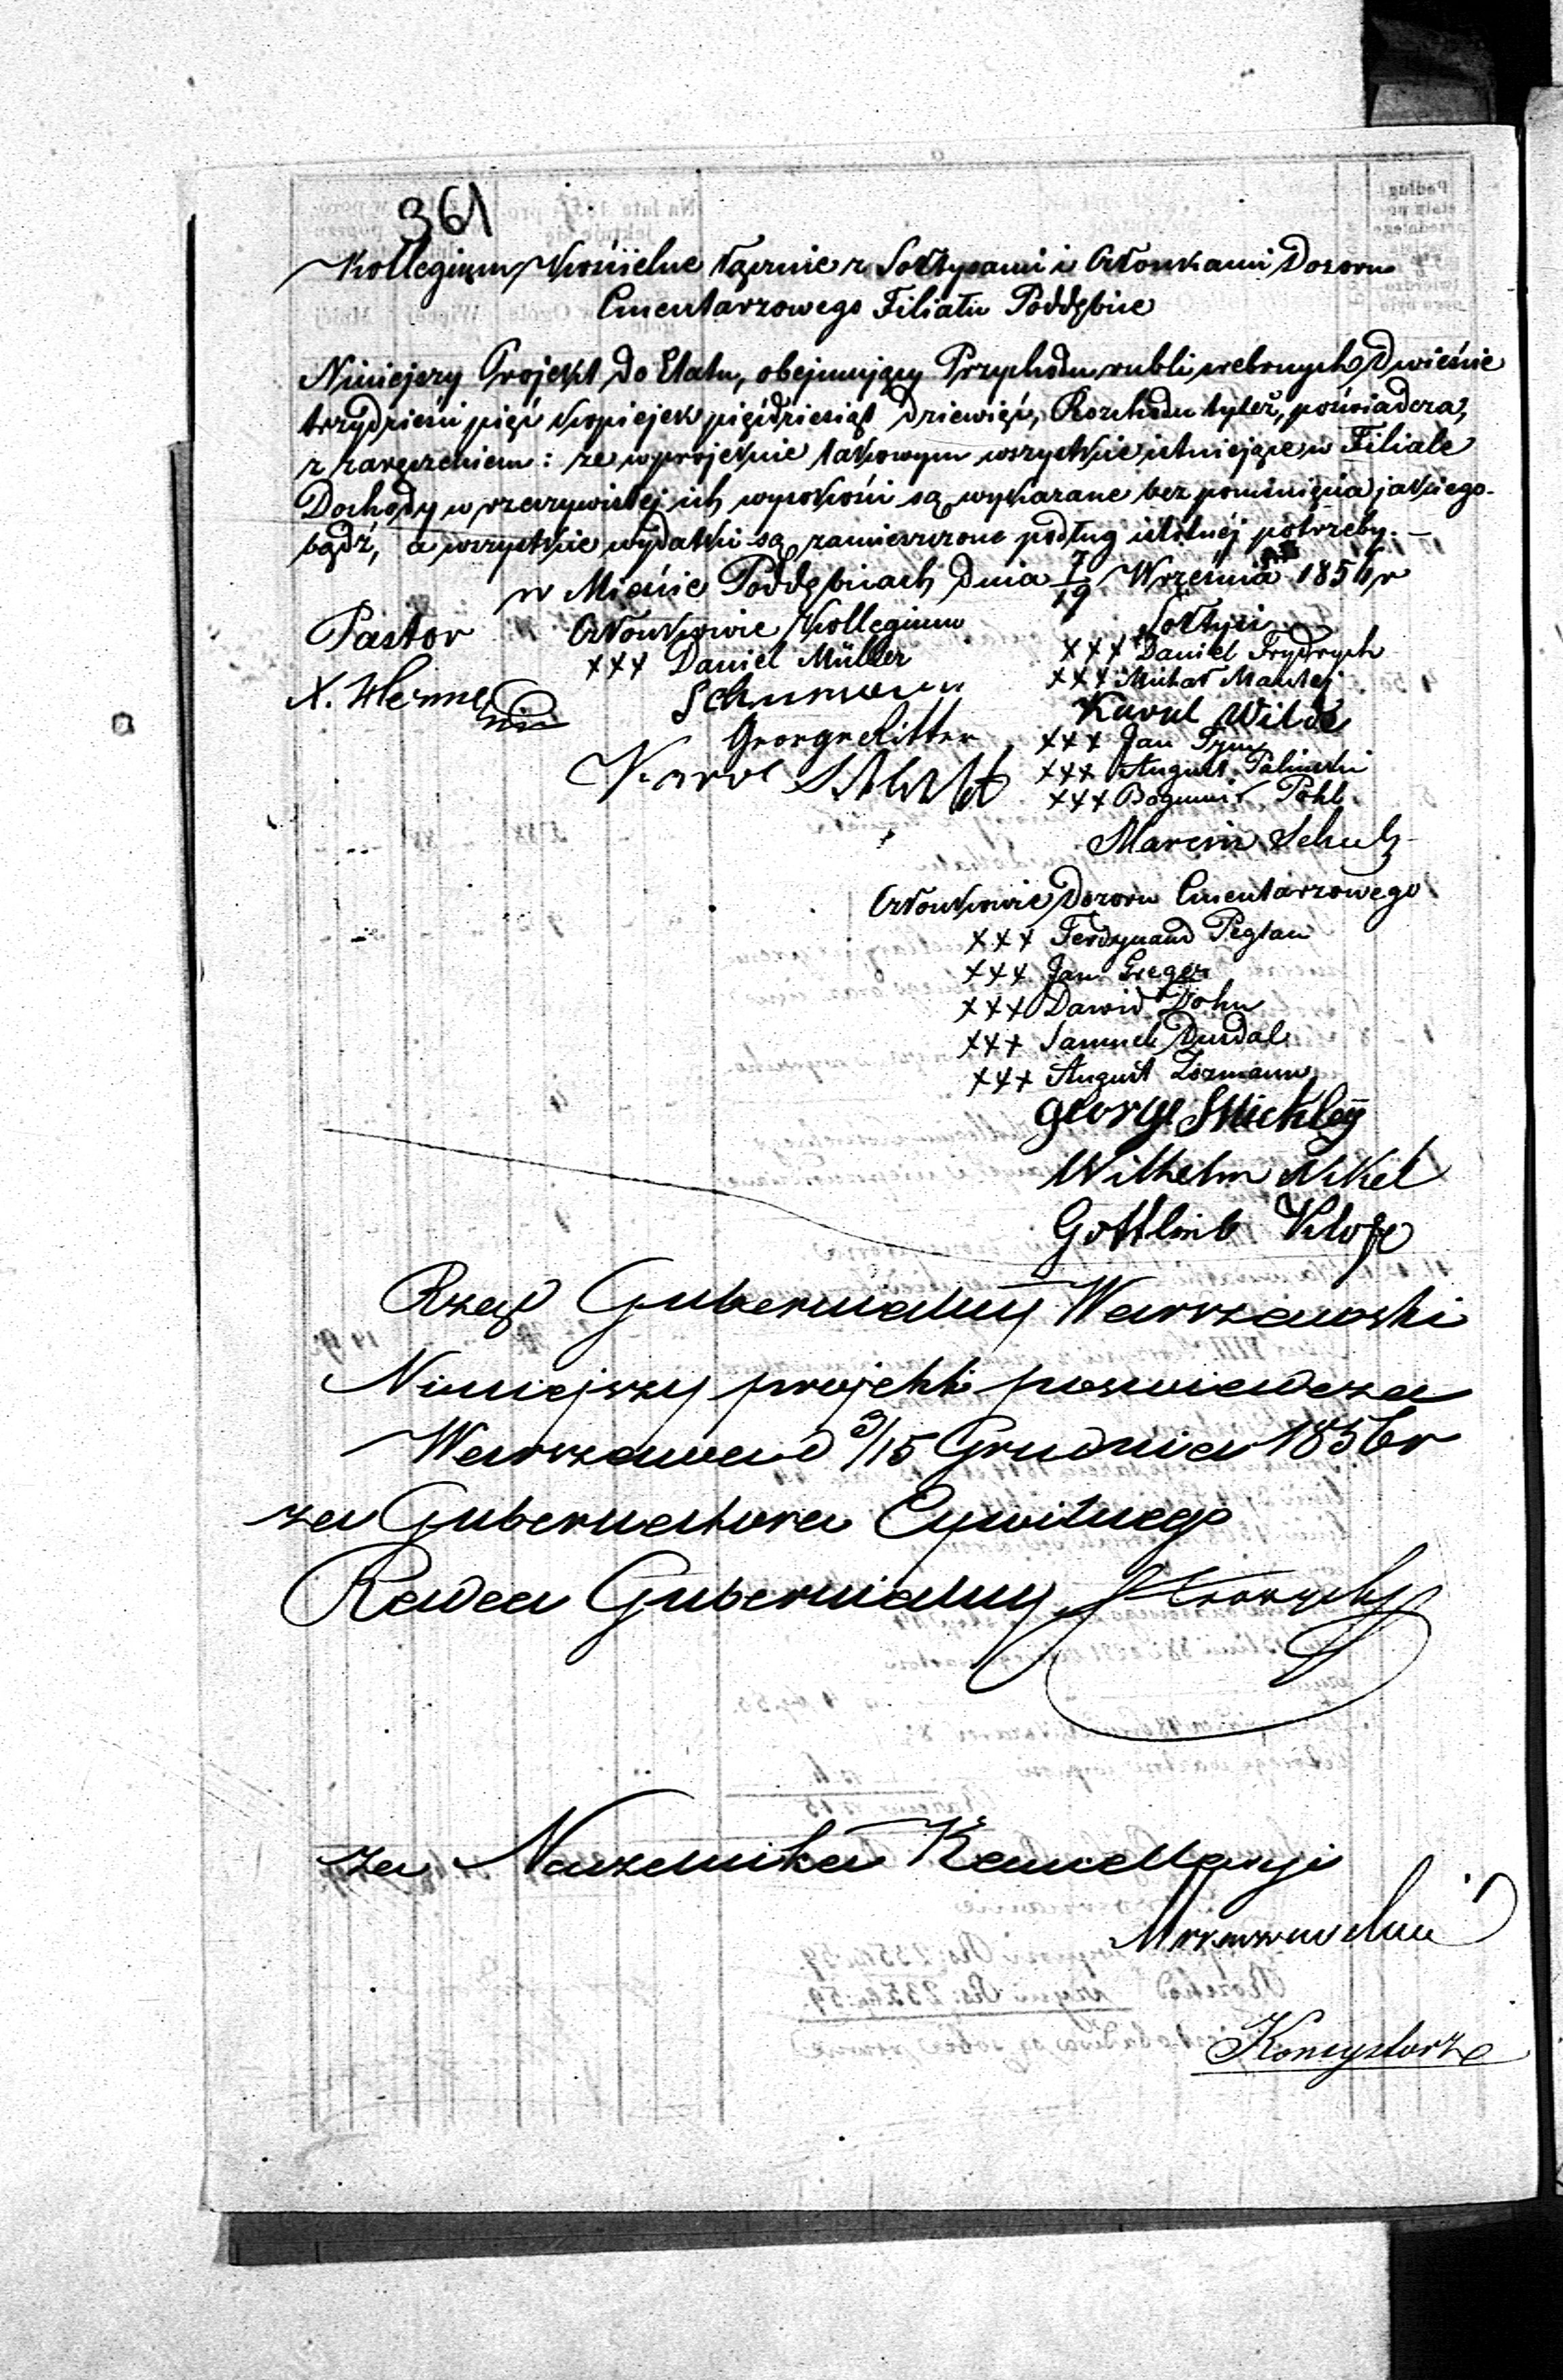 361
Kollegium Kościelne łącznie z Sołtysami i Członkami Dozoru
Cmentarzowego Filiału Poddębice
Niniejszy Projekt do Etatu, obejmujący Przychodu rubli srebrnych Dwieście
trzydzieści pięć kopiejek pięćdziesiąt dziewięć, Rozchodu tyleż, poświadcza,
z zaręczeniem: że w projekcie takowym wszystkie istniejące w Filiale
Dochody w rzeczywistej ich wysokości są wykazane bez pominięcia jakiego-
bądź, a wszystkie wydatki są zamieszczone podług istotnéj potrzeby.—
w Mieście Poddębicach Dnia 7/19 Września 185 r
Pastor Członkowie Kollegium Sołtysi
X. +++ Daniel Müller +++ Daniel Frydrych
+++ Michał Mantej
George Ritter Karol Wilde
Karol +++ Jan
+++ August
+++ Bogumił Pohl
Marcin Schulz
Członkowie Dozoru Cmentarzowego
+++ Ferdynand Peglau
+++ Jan Greger
+++ Dawid Dohn
+++ Samuel Durdal
+++ August
George
Wilhelm Nikel
Gottlieb Klose
Rząd Gubernialny Warszawski
Niniejszy projekt poswiadcza
Warszawa d 3/15 Grudnia 1856 r
za Gubernatora Cywilnego
Radca Gubernialny
za Naczelnika Kancellaryi
Konsystorz